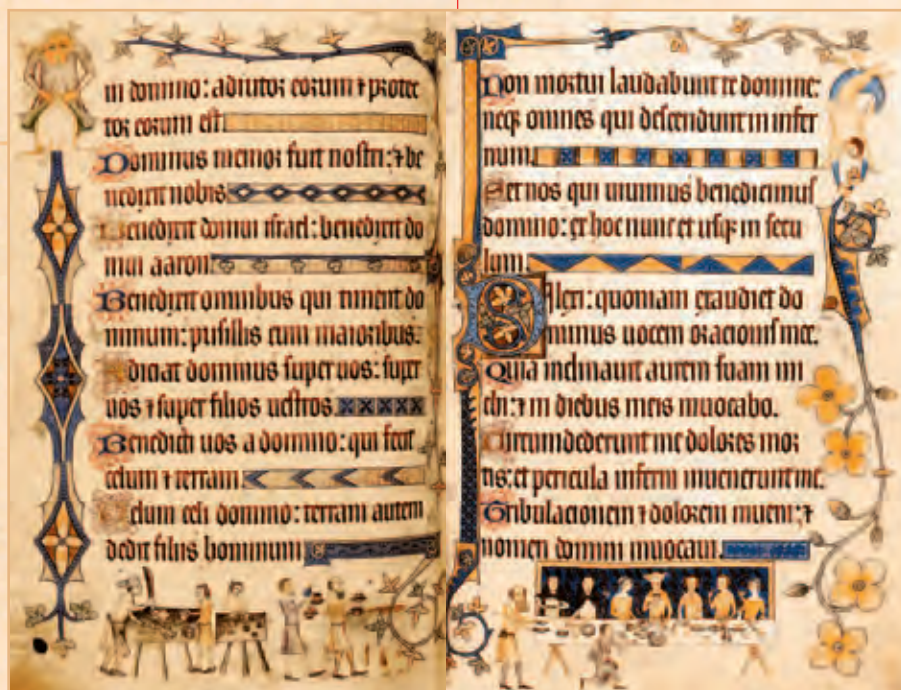 in domino: adiutor eorum ⁊ protec
tor eorum est
Dominus memor fuit nostri: ⁊ be
nedixit nobis
Benedixit domui israel: benedixit do
mui aaron
Benedixit omnibus qui timent do
minum: pusillis cum maioribus.
Adiciat dominus super uos: super
uos ⁊ super filios uestros
Benedicti uos a domino: qui fecit
celum ⁊ terram
Celum celi domino: terram autem
dedit filiis hominum
Non mortui laudabunt te domine:
neqꝫ omnes qui descendunt in infer
num
Set nos qui uiuimus benedicimus
domino: ex hoc nunc et usqꝫ in secu
lum
Dilexi: quoniam exaudiet do
minus uocem oracionis mee.
Quia inclinauit aurem suam mi
chi: ⁊ in diebus meis inuocabo.
Circumdederunt me dolores mor
tis: et pericula inferni inuenerunt me.
Tribulacionem ⁊ dolorem inueni: ⁊
nomen domini inuocaui